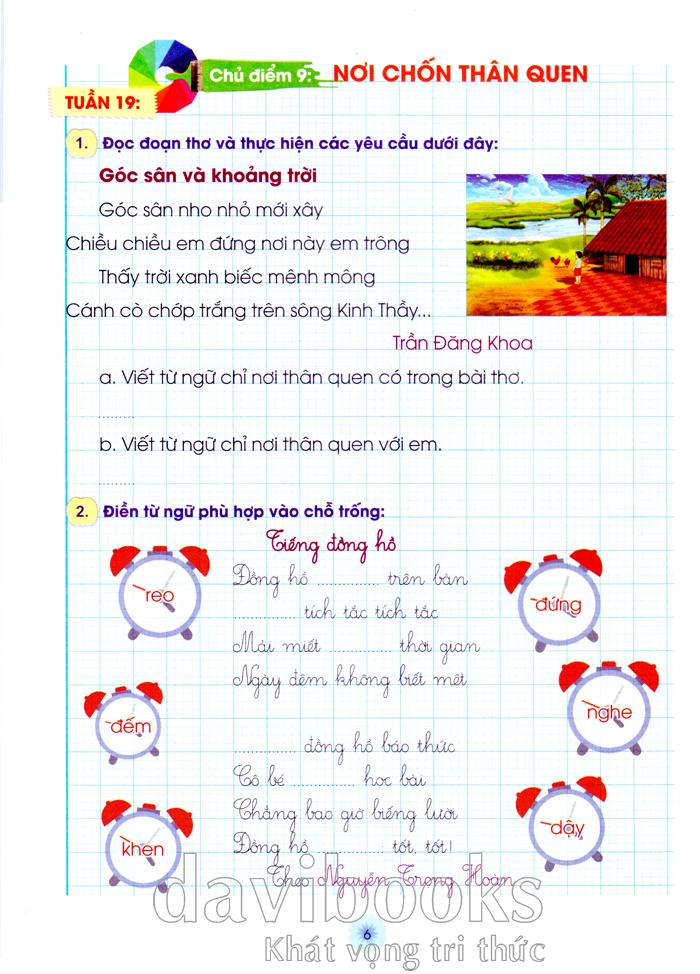 Chủ điểm 9: NƠI CHỐN THÂN QUEN
TUẦN 19:
1. Đọc đoạn thơ và thực hiện các yêu cầu dưới đây:
Góc sân và khoảng trời
Góc sân nho nhỏ mới xây
Chiều chiều em đứng nơi này em trông
Thấy trời xanh biếc mênh mông
Cánh cò chớp trắng trên sông Kinh Thầy...
Trần Đăng Khoa
a. Viết từ ngữ chỉ nơi thân quen có trong bài thơ.
.........
b. Viết từ ngữ chỉ nơi thân quen với em.
.........
2. Điền từ ngữ phù hợp vào chỗ trống:
Tiếng đồng hồ
Đồng hồ ............... trên bàn
............... tích tắc tích tắc
Mải miết ............... thời gian
Ngày đêm không biết mệt
............... đồng hồ báo thức
Cô bé ............... học bài
Chẳng bao giờ biếng lười
Đồng hồ ...............: tốt, tốt!
Theo Nguyễn Trọng Hoàn
reo
đếm
khen
đứng
nghe
dậy
davibooks
Khát vọng tri thức
6